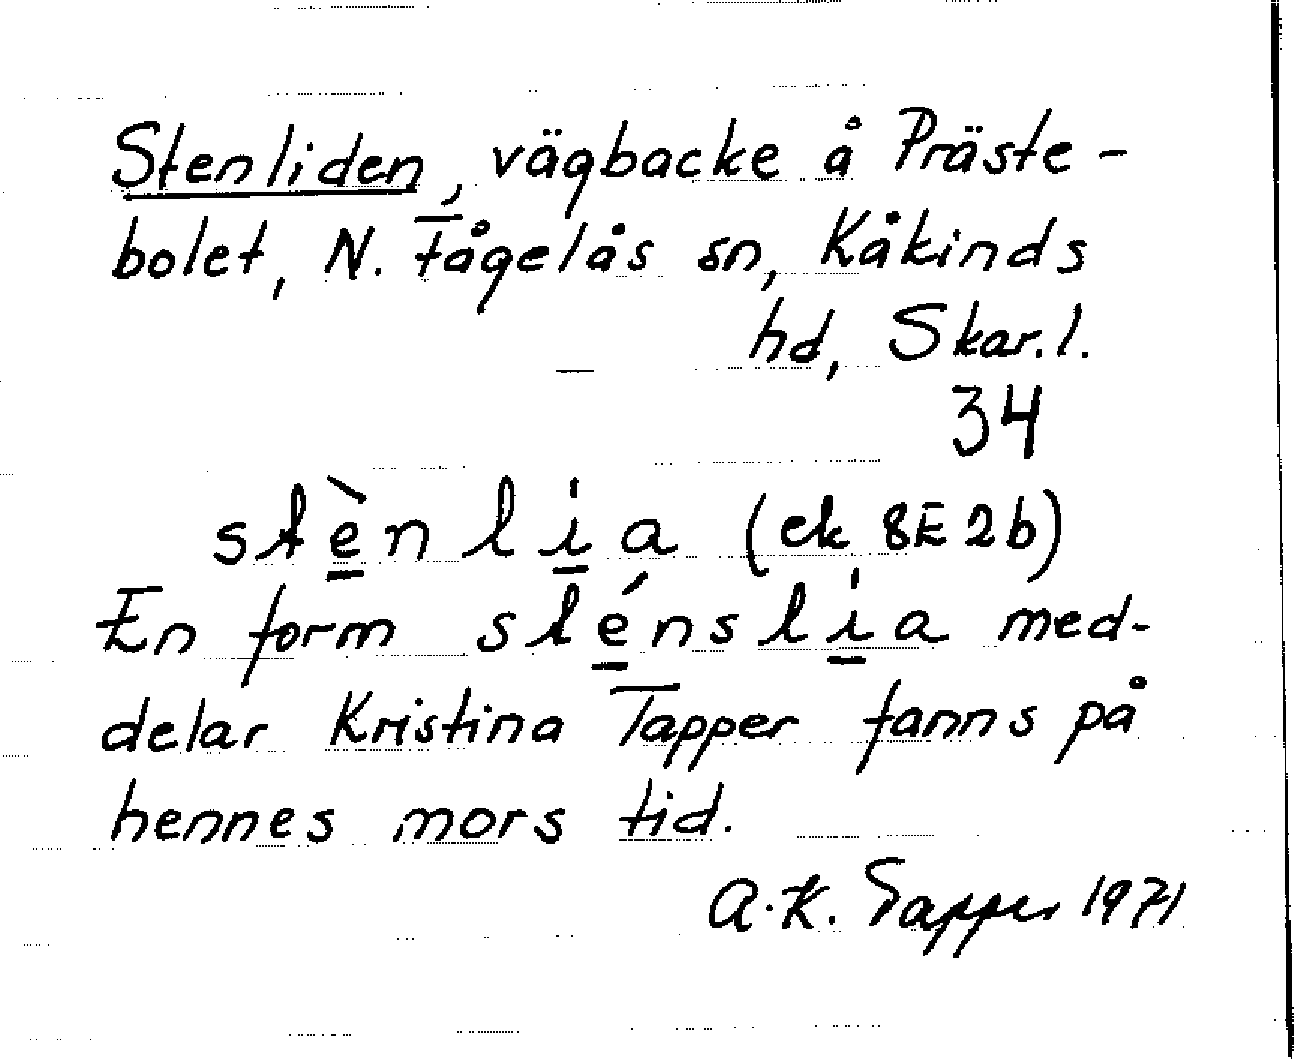 Stenliden, vägbacke å Präste-
bolet, N. Fågelås sn, Kåkinds
hd, Skar. l.
34
stènlia (ek 8E2b)
En form sténslia med-
delar Kristina Tapper fanns på
hennes mors tid.
A.K. Tapper 1971